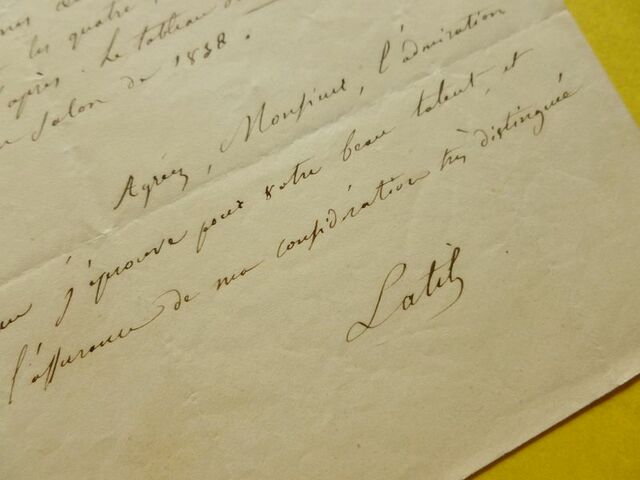 les quatre
après. Le tableau d
Salon de 1838.
Agréez, Monsieur, l'admiration
que j'éprouve pour votre beau talent, et
l'assurance de ma considération très distinguée
Latil